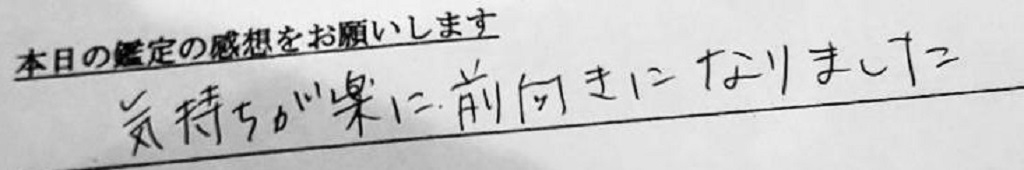 本日の鑑定の感想をお願いします
気持ちが楽に前向きになりました